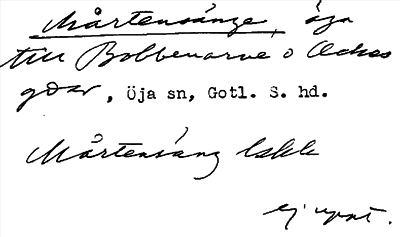 Mårtensänge, äga
till Bobbenarve o Ockes
gdar, Öja sn, Gotl. S. hd.
Mårtensäng
ej uppt.